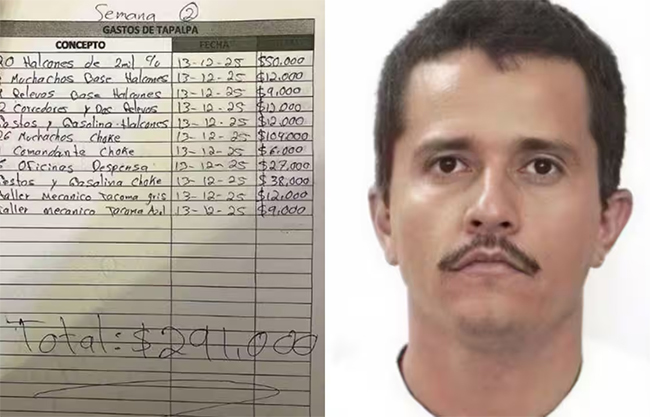 Semana 2
GASTOS DE TAPALPA
CONCEPTO FECHA
20 Halcones de 2mil % 13-12-25 $50,000
Muchachos Base Halcones 13-12-25 $12,000
Relevos Base Halcones 13-12-25 $9,000
2 Corredores y Dos Relevos 13-12-25 $12,000
Gastos y Gasolina Halcones 13-12-25 $12,000
26 Muchachos Choke 13-12-25 $104,000
Comandante Choke 13-12-25 $6,000
Oficinas Despensa 13-12-25 $27,000
Gastos y Gasolina Choke 13-12-25 $38,000
taller Mecanico Tacoma gris 13-12-25 $12,000
taller mecanico Tacoma Azul 13-12-25 $9,000
Total: $291,000